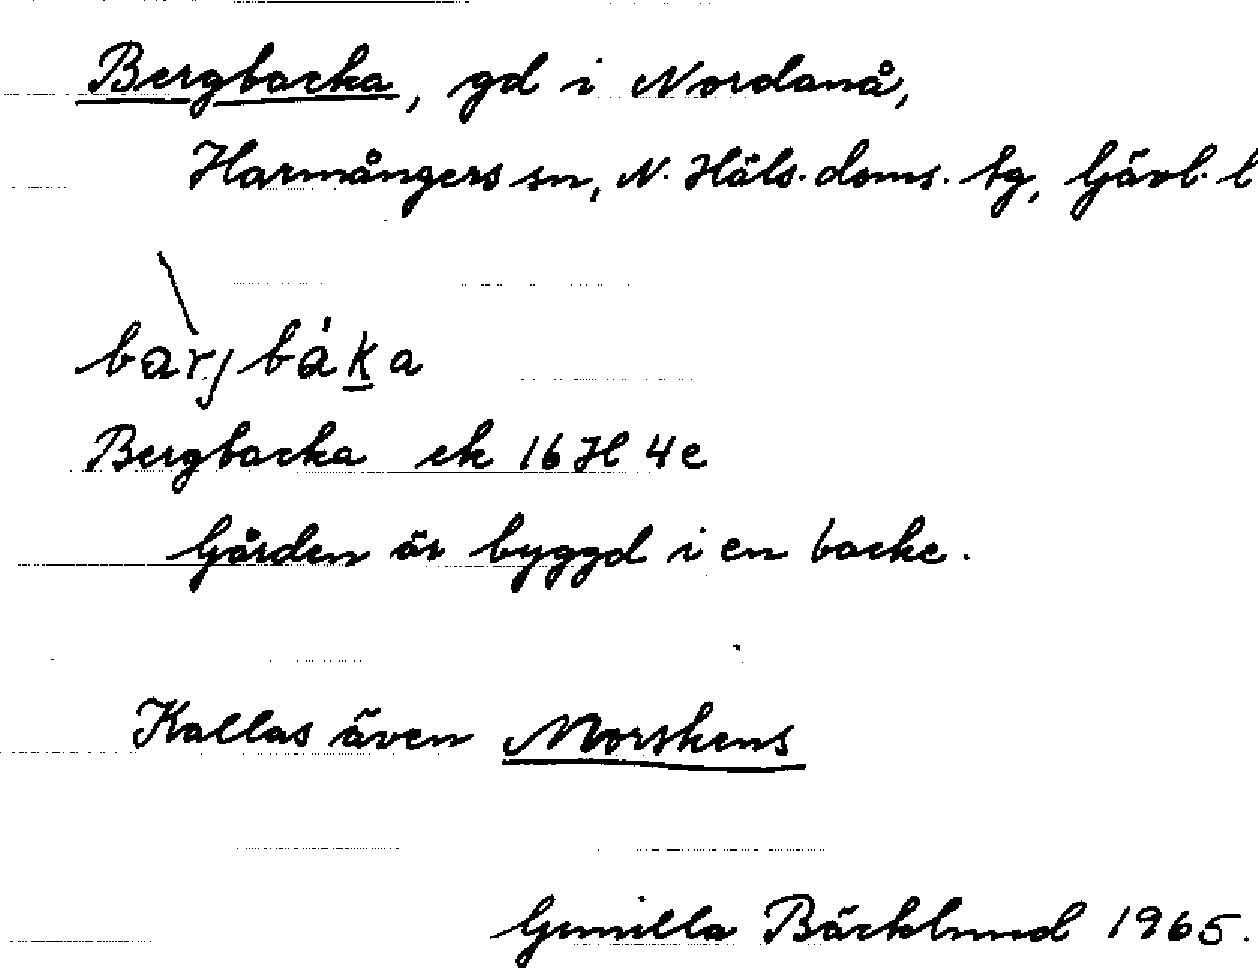 Bergbacka, gd i Nordanå,
Harmångers sn, N. Häls. doms. tg, Gävl. l
barj báka
Bergbacka ek 16H 4e
Gården är byggd i en backe.
Kallas även Morskens
Gunilla Bäcklund 1965.